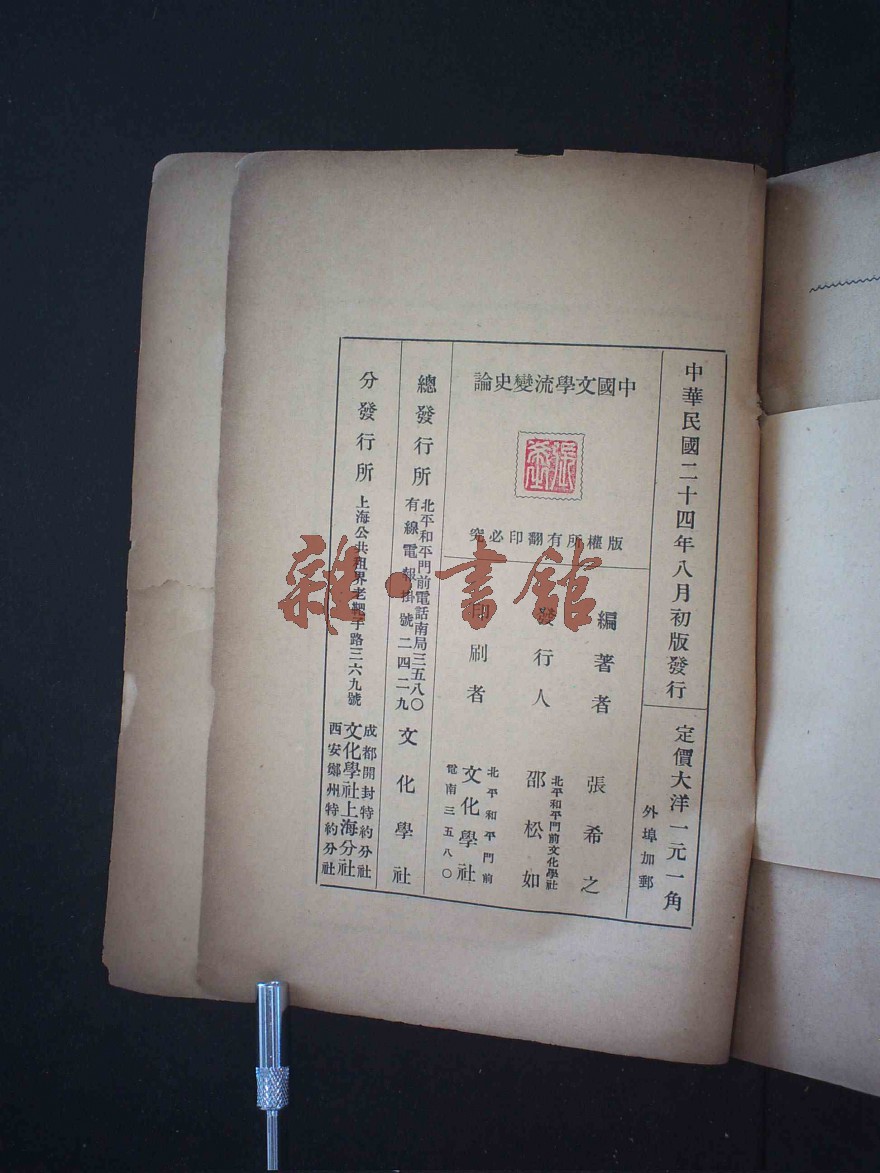 中華民國二十四年八月初版發行
定價大洋一元一角
外埠加郵
中國文學流變史論
張希之
版權所有翻印必究
編著者 張希之
發行人 北平和平門前文化學社 邵松如
印刷者 北平和平門前 文化學社 電南三五八〇
總發行所 北平和平門前電話南局三五八〇 有線電報掛號二四二九 文化學社
分發行所 上海公共租界老靶子路三六九號 成都開封特約分社 文化學社上海分社 西安鄭州特約分社
雜·書館